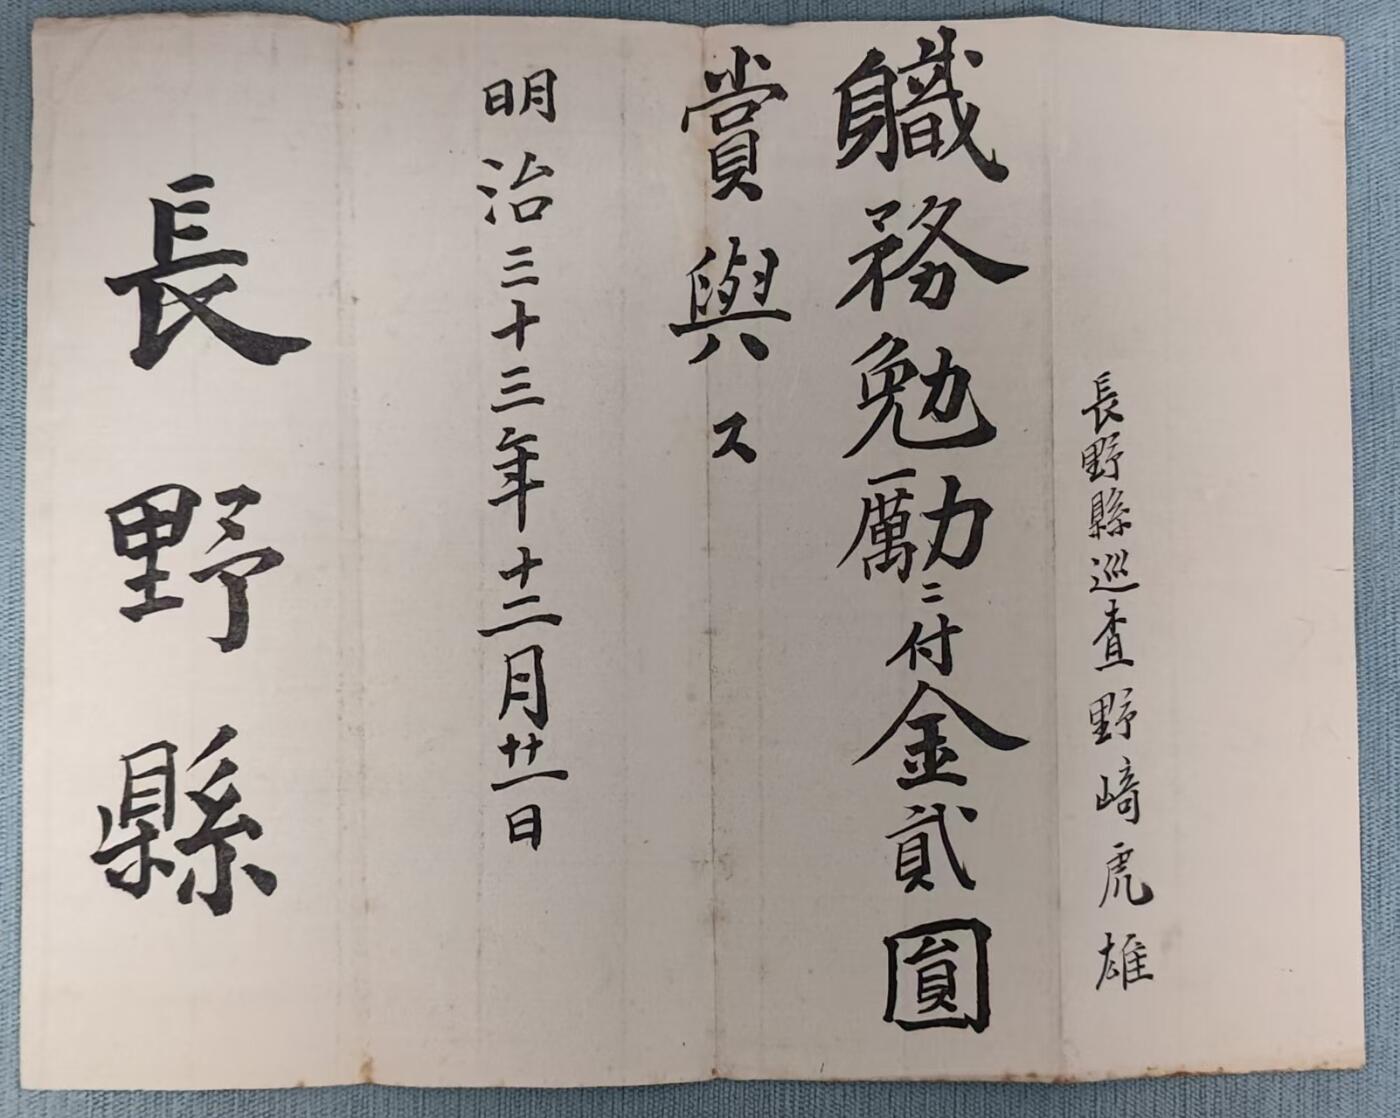 長野縣巡査野﨑虎雄
職務勉勵ニ付金貳圓
賞與ス
明治三十三年十二月廿一日
長野縣